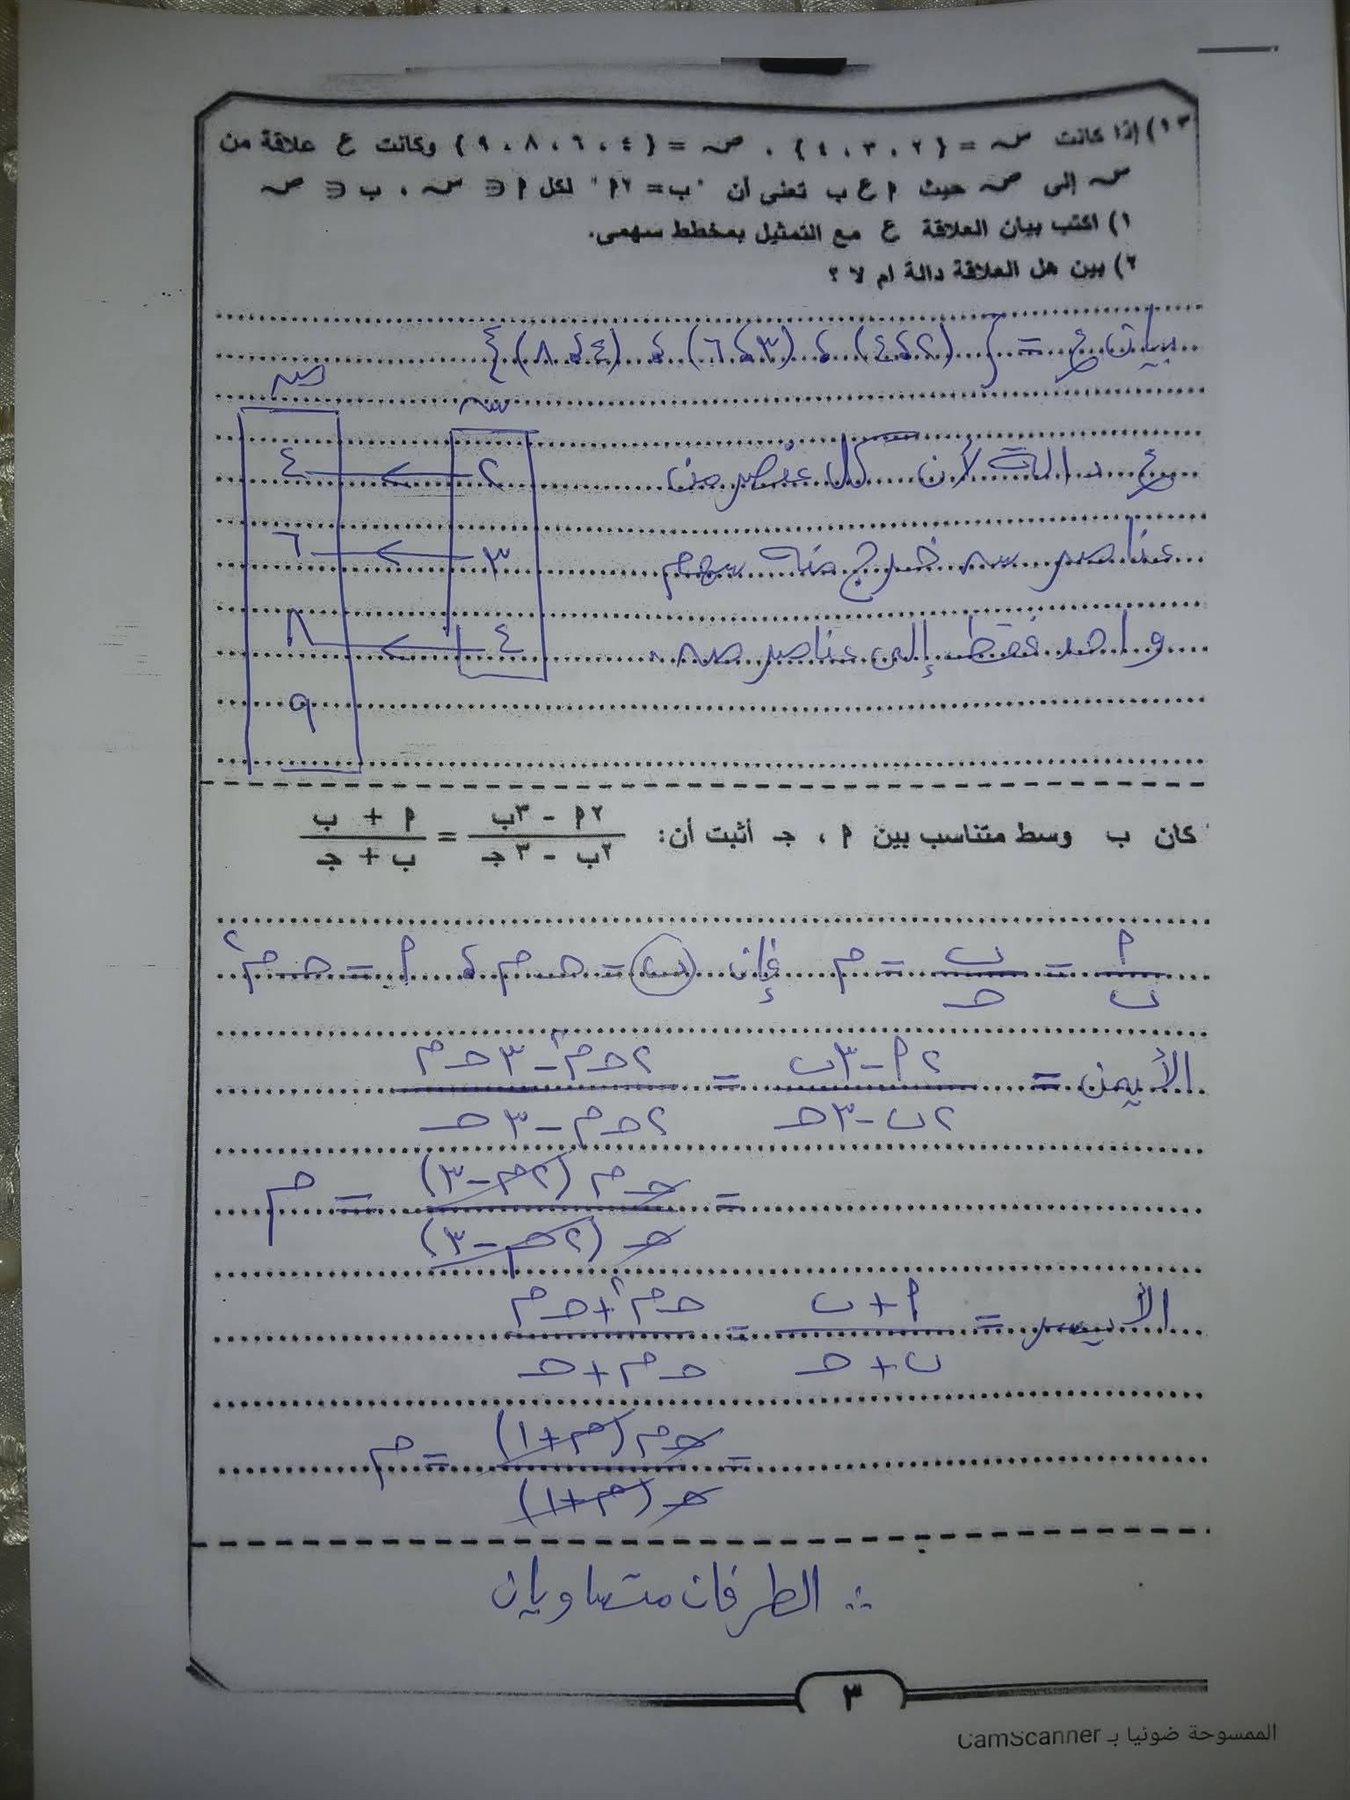 ١٣) إذا كانت س = {٢ ، ٣ ، ٤} ، ص = {٤ ، ٦ ، ٨ ، ٩} وكانت ع علاقة من
س إلى ص حيث أ ع ب تعنى أن "ب = ٢أ" لكل أ ∈ س ، ب ∈ ص
١) اكتب بيان العلاقة ع مع التمثيل بمخطط سهمى.
٢) بين هل العلاقة دالة ام لا ؟
بيان ع = {(٢،٤) ، (٣،٦) ، (٤،٨)}
س
ص
ع دالة لأن كل عنصر من
عناصر س خرج منه سهم
واحد فقط إلى عناصر ص
٢ ← ٤
٣ ← ٦
٤ ← ٨
٩
كان ب وسط متناسب بين أ ، جـ أثبت أن: (٢أ - ٣ب)/(٢ب - ٣جـ) = (أ + ب)/(ب + جـ)
أ/ب = ب/جـ = م فإن ب = جـ م ، أ = جـ م٢
الأيمن = (٢أ - ٣ب)/(٢ب - ٣جـ) = (٢جـم٢ - ٣جـم)/(٢جـم - ٣جـ)
= جـم(٢م - ٣)/جـ(٢م - ٣) = م
الأيسر = (أ + ب)/(ب + جـ) = (جـم٢ + جـم)/(جـم + جـ)
= جـم(م + ١)/جـ(م + ١) = م
∴ الطرفان متساويان
٣
الممسوحة ضوئيا بـ CamScanner